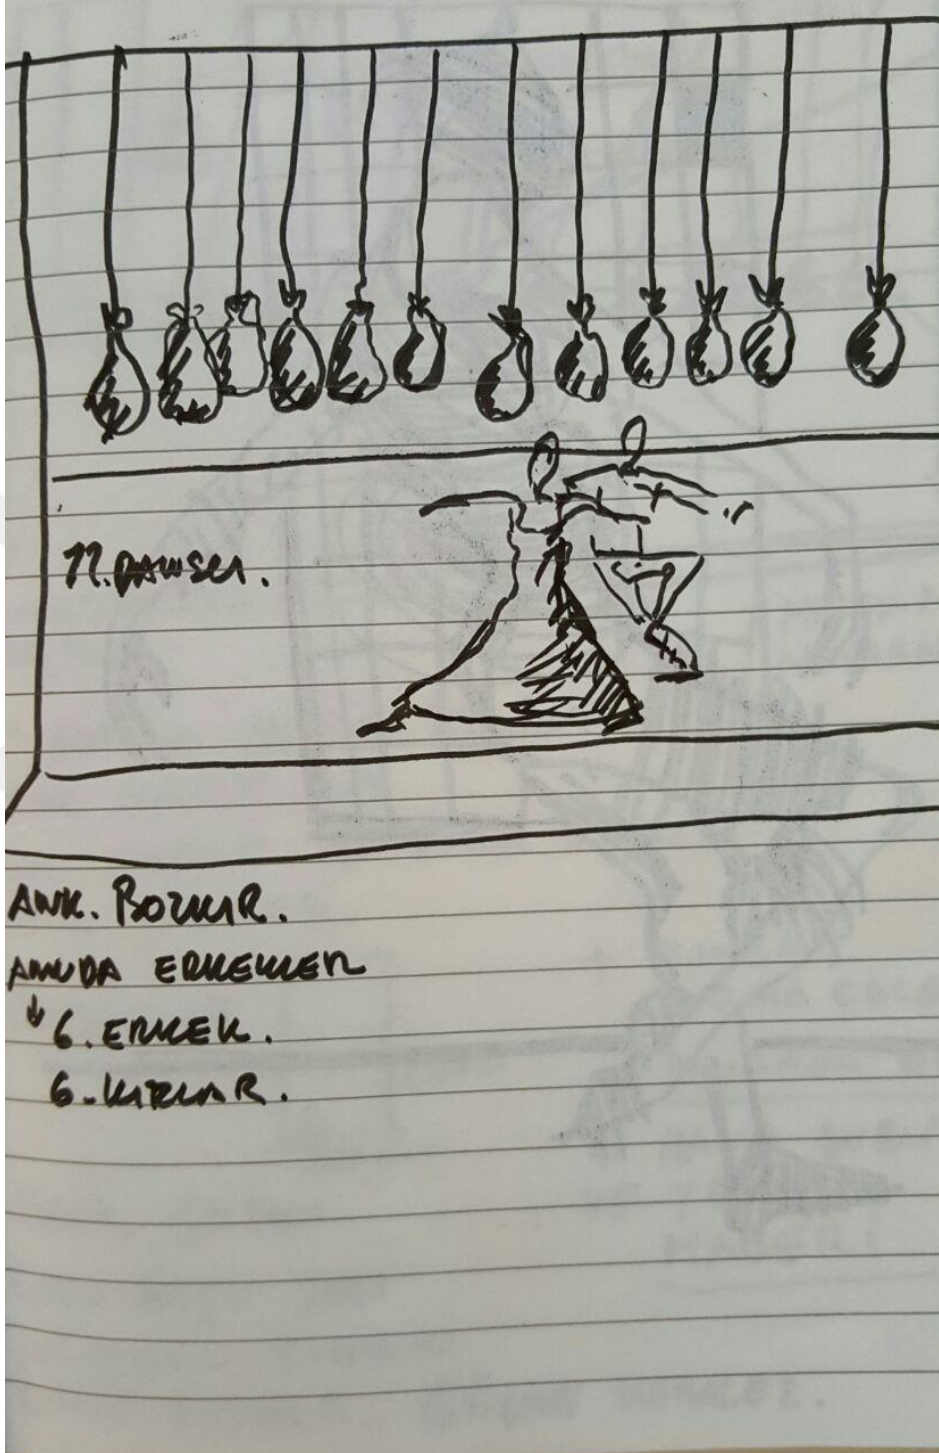 12. DANSCI.
ANK. BOZKIR.
AMUDA ERKEKLER
6. ERKEK.
6. KIZLAR.